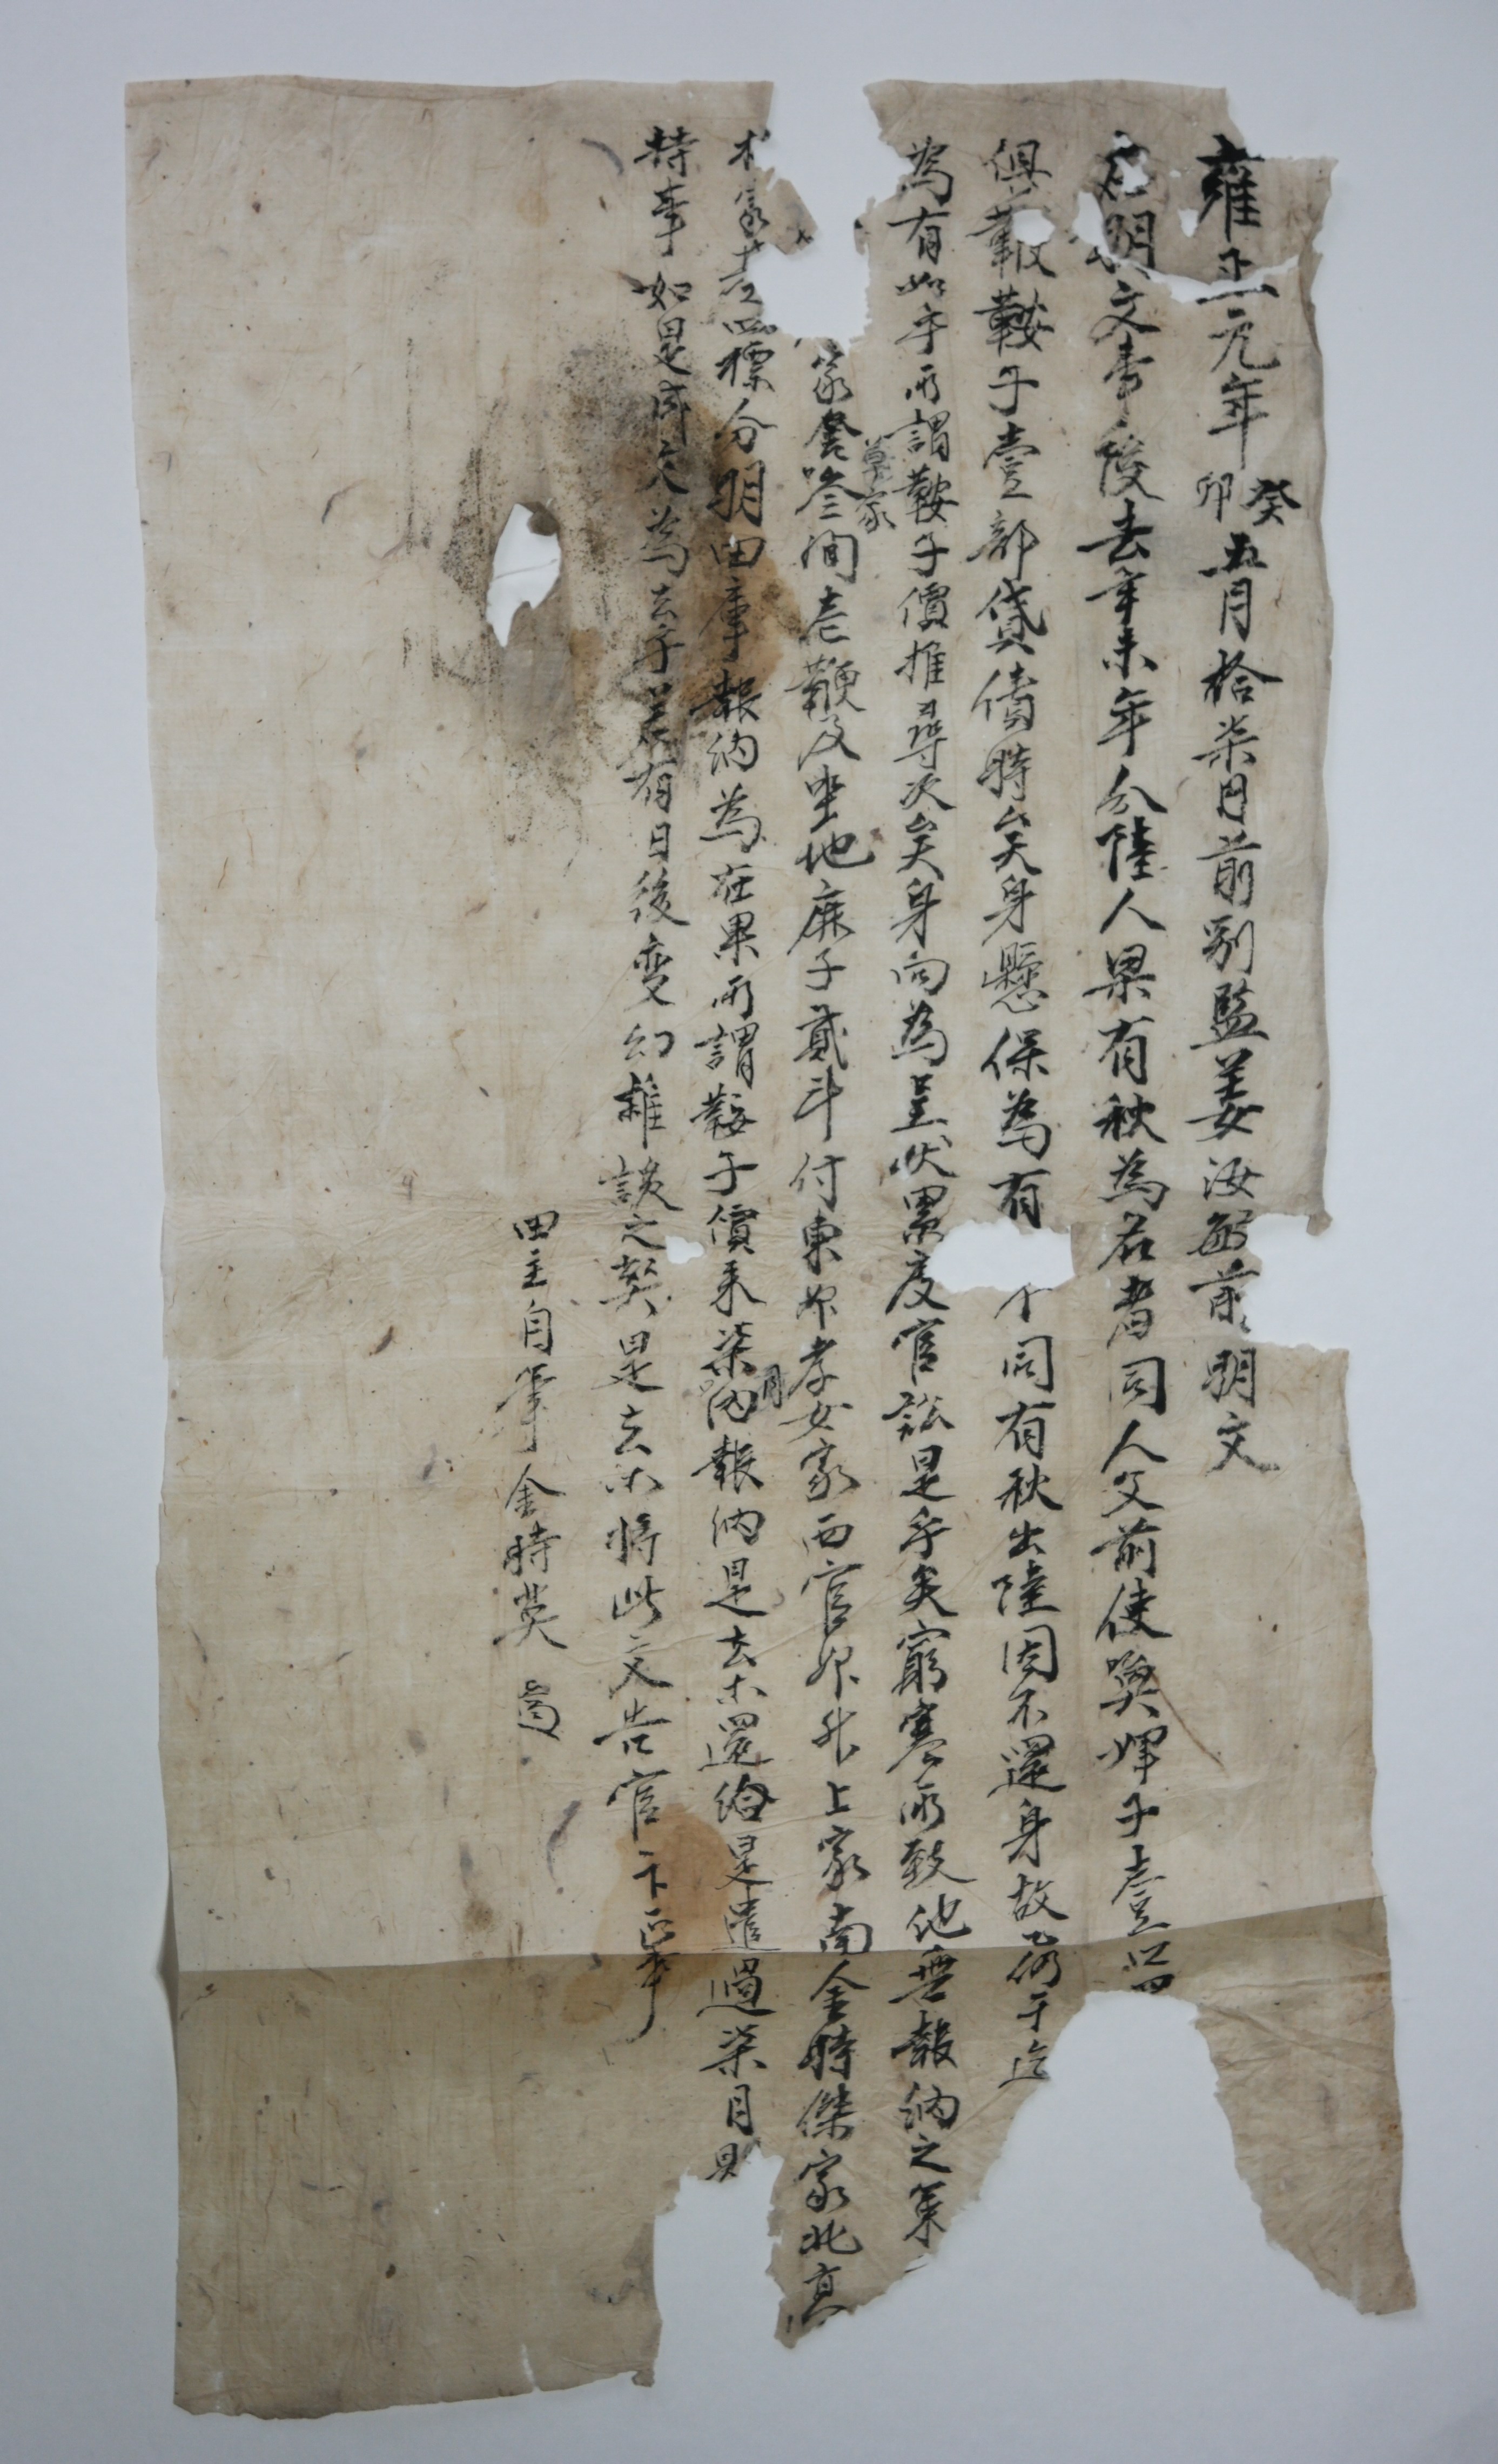 雍正元年癸卯五月拾柒日前別監姜汝弼前明文
右明文事段去年末年分陸人果有秋爲名者同人父前使喚婢子壹口
俱鞍鞍子壹部貸債時矣身懸保爲有 同有秋出陸因不還身故乙仍于迄
爲有如乎所謂鞍子價推尋次矣身向爲呈狀累度官訟是乎矣窮寒所致他無報納之策
家舍參間草家壹鞭及垈地麻子貳斗付東介孝女家西官介升上家南金時傑家北真
木家庄四標分明田庫報納爲在果所謂鞍子價未柒月內報納是去乃還給是遣過柒月則
持事如是成文爲去乎若有日後変幻雜談之弊是去等將此文告官卞正事
田主自筆金時英